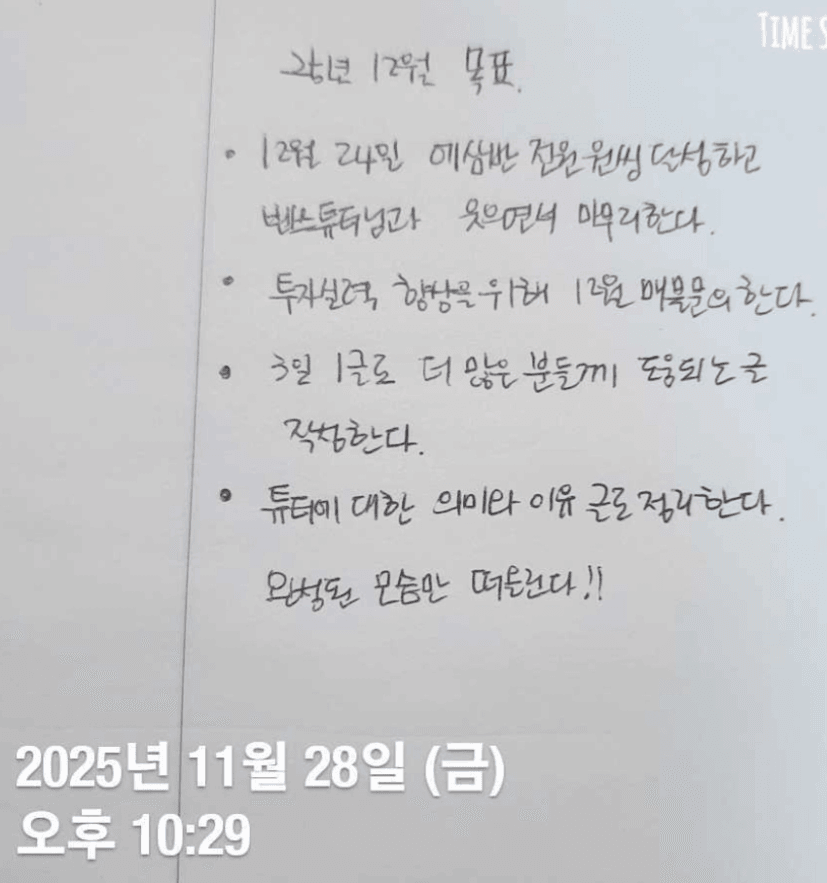 TIME S
25년 12월 목표.
• 12월 24일 에삼반 전원 원씽 달성하고
벤스튜터님과 웃으면서 마무리한다.
• 투자실력 향상을 위해 12월 매물문의한다.
• 3일 1글로 더 많은 분들께 도움되는 글
작성한다.
• 튜터에 대한 의미와 이유 글로 정리한다.
완성된 모습만 떠올린다!!
2025년 11월 28일 (금)
오후 10:29